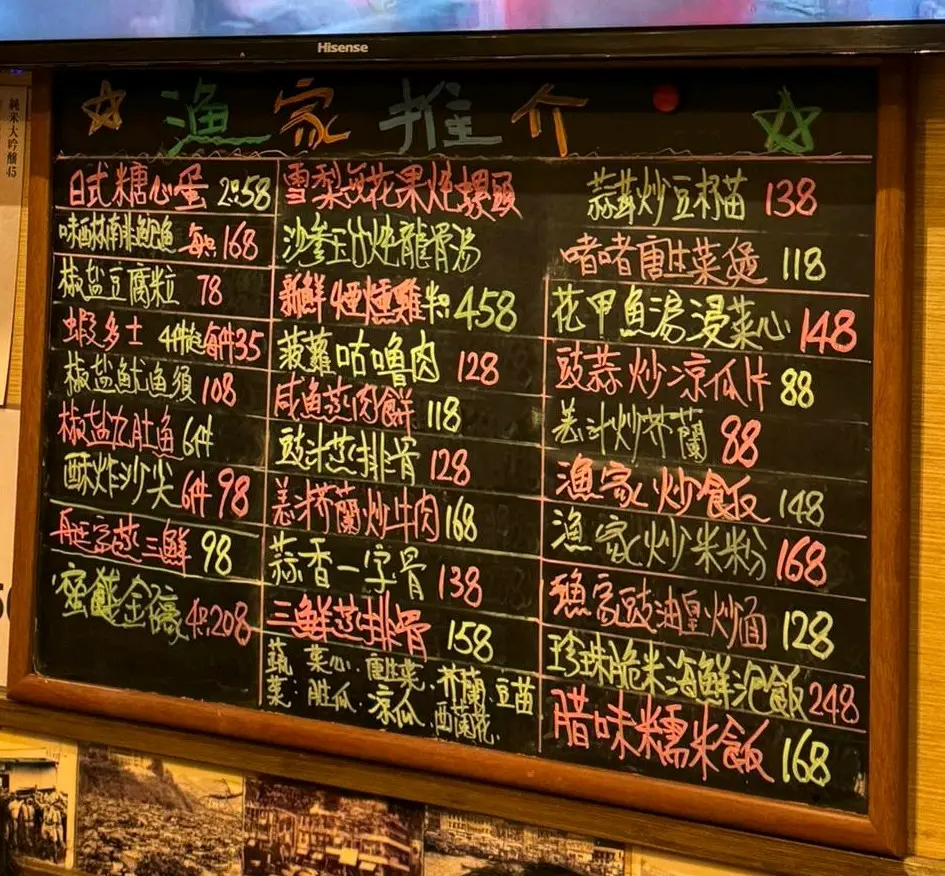 Hisense
純米大吟醸45
☆ 漁家推介 ☆
日式糖心蛋 2只58
味醂林南非鮑魚 每只168
椒盐豆腐粒 78
蝦多士 4件起每件35
椒盐魷魚須 108
椒盐九肚魚 6件
酥炸沙尖 6件98
蒸三鮮 98
金 4只208
雪梨无花果炖螺頭
沙參玉竹炖龍骨湯
新鮮烟燻雞 半只458
菠蘿咕嚕肉 128
咸魚蒸肉餅 118
豉汁蒸排骨 128
羌汁芥蘭炒牛肉 168
蒜香一字骨 138
三鮮蒸排骨 158
蔬菜: 菜心.唐生菜.芥蘭.豆苗
胜瓜.凉瓜.西蘭花.
蒜茸炒豆苗 138
啫啫唐生菜煲 118
花甲魚湯浸菜心 148
豉蒜炒凉瓜片 88
羌汁炒芥蘭 88
漁家炒飯 148
漁家炒米粉 168
漁家豉油皇炒麵 128
珍珠脆米海鮮泡飯 248
腊味糯米飯 168